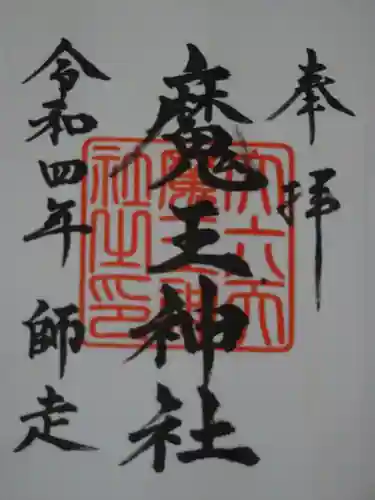 奉拝
魔王神社
令和四年 師走